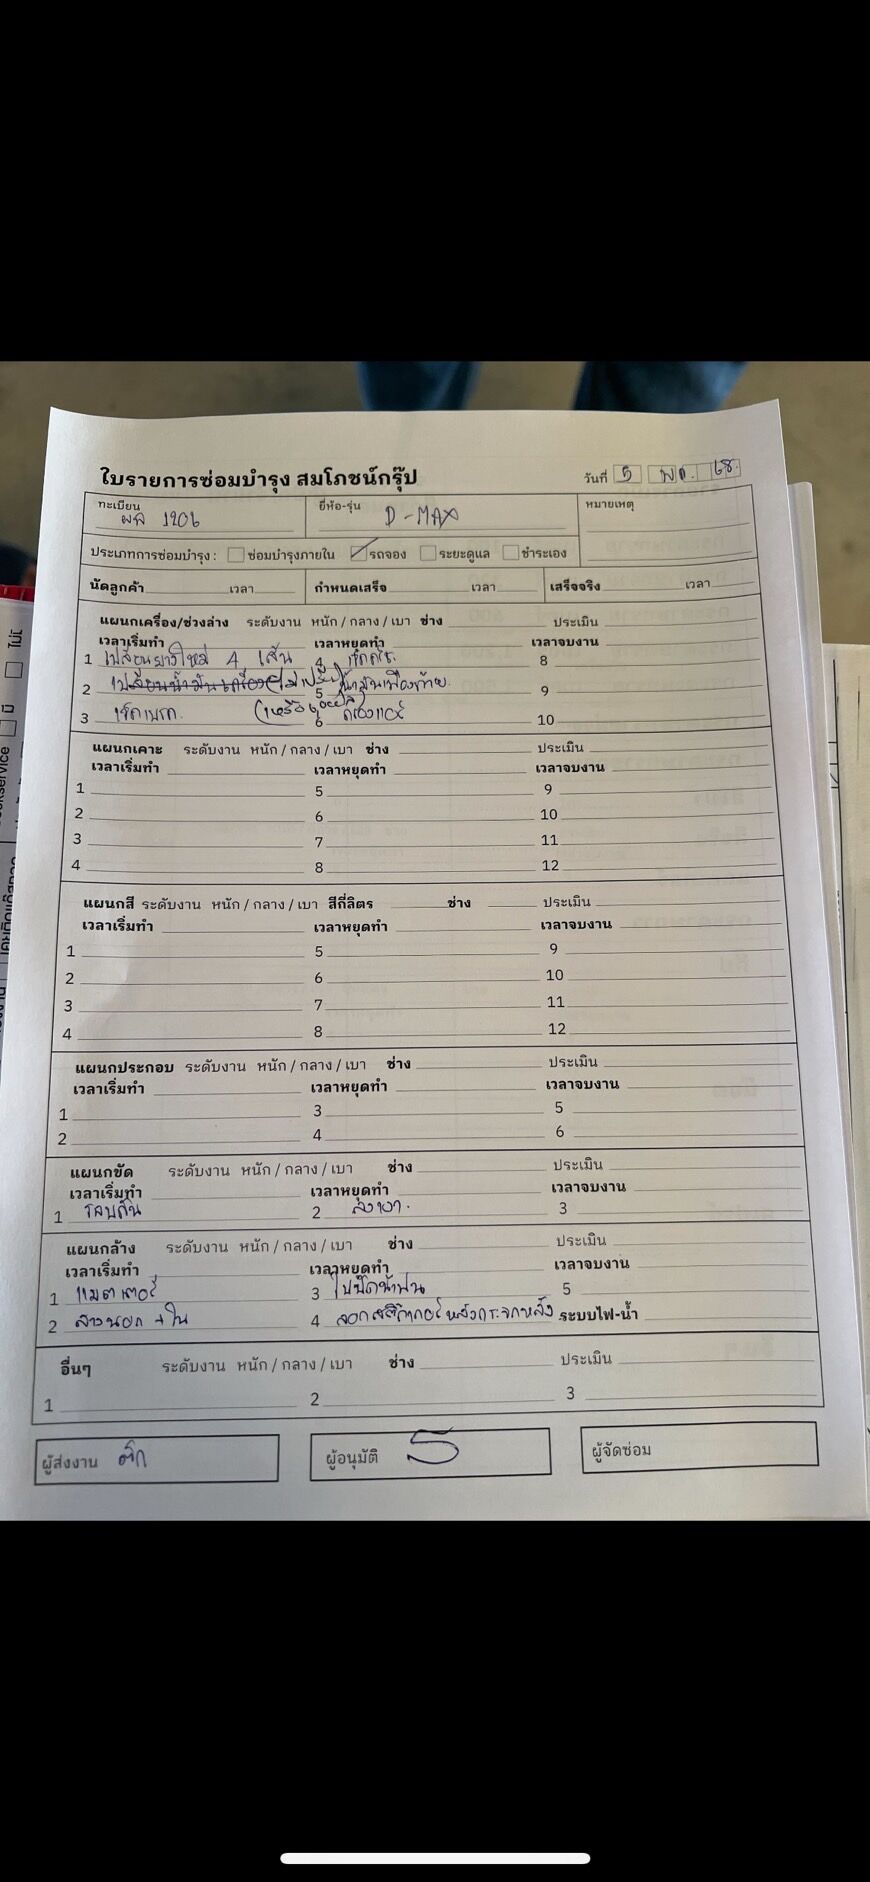 ใบรายการซ่อมบำรุง สมโภชน์กรุ๊ป วันที่ 5 พ.ย. 68.
ทะเบียน 1206 ยี่ห้อ-รุ่น D-MAX หมายเหตุ
ประเภทการซ่อมบำรุง : ซ่อมบำรุงภายใน รถจอง ระยะดูแล ชำระเอง
นัดลูกค้า เวลา กำหนดเสร็จ เวลา เสร็จจริง เวลา
แผนกเครื่อง/ช่วงล่าง ระดับงาน หนัก / กลาง / เบา ช่าง ประเมิน
เวลาเริ่มทำ เวลาหยุดทำ เวลาจบงาน
1 เปลี่ยนยางใหม่ 4 เส้น 4 8
2 เปลี่ยนน้ำมันเครื่อง 5 น้ำมันเฟืองท้าย. 9
3 เช็คเบรค. 6 กรองแอร์ 10
แผนกเคาะ ระดับงาน หนัก / กลาง / เบา ช่าง ประเมิน
เวลาเริ่มทำ เวลาหยุดทำ เวลาจบงาน
1 5 9
2 6 10
3 7 11
4 8 12
แผนกสี ระดับงาน หนัก / กลาง / เบา สีกี่ลิตร ช่าง ประเมิน
เวลาเริ่มทำ เวลาหยุดทำ เวลาจบงาน
1 5 9
2 6 10
3 7 11
4 8 12
แผนกประกอบ ระดับงาน หนัก / กลาง / เบา ช่าง ประเมิน
เวลาเริ่มทำ เวลาหยุดทำ เวลาจบงาน
1 3 5
2 4 6
แผนกขัด ระดับงาน หนัก / กลาง / เบา ช่าง ประเมิน
เวลาเริ่มทำ เวลาหยุดทำ เวลาจบงาน
1 รอบคัน 2 ลงเงา. 3
แผนกล้าง ระดับงาน หนัก / กลาง / เบา ช่าง ประเมิน
เวลาเริ่มทำ เวลาหยุดทำ เวลาจบงาน
1 แบตเตอรี่ 3 ใบปัดน้ำฝน 5
2 ล้างนอก + ใน 4 ลอกสติกเกอร์หลังกระจกหลัง ระบบไฟ-น้ำ
อื่นๆ ระดับงาน หนัก / กลาง / เบา ช่าง ประเมิน
1 2 3
ผู้ส่งงาน ติ๊ก ผู้อนุมัติ ผู้จัดซ่อม